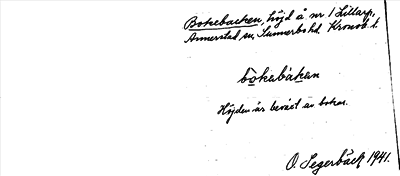 Bokebacken, höjd å nr 1 Lillarp,
Annerstad sn, Sunnerbo hd. Kronob. l.
bōkabákan
Höjden är beväxt av bokar.
O. Segerbäck 1941.